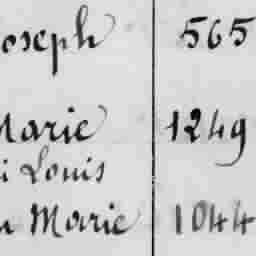 oseph 565
Marie 1249
i Louis
u Marie 1044